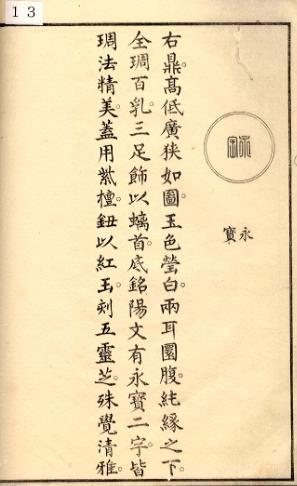 13
永寶
永寶
右鼎髙低廣狹如圖。玉色瑩白。兩耳圜腹。純緣之下。
全琱百乳。三足飾以螭首。底銘陽文有永寶二字。皆
琱法精美。蓋用紫檀。鈕以紅玉。刻五靈芝。殊覺清雅。